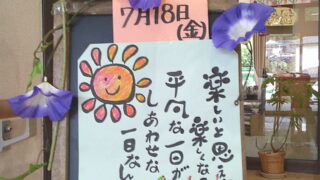 7月18日
(金)
楽しいと思
楽しくな
平凡な一日が
しあわせな
一日なん